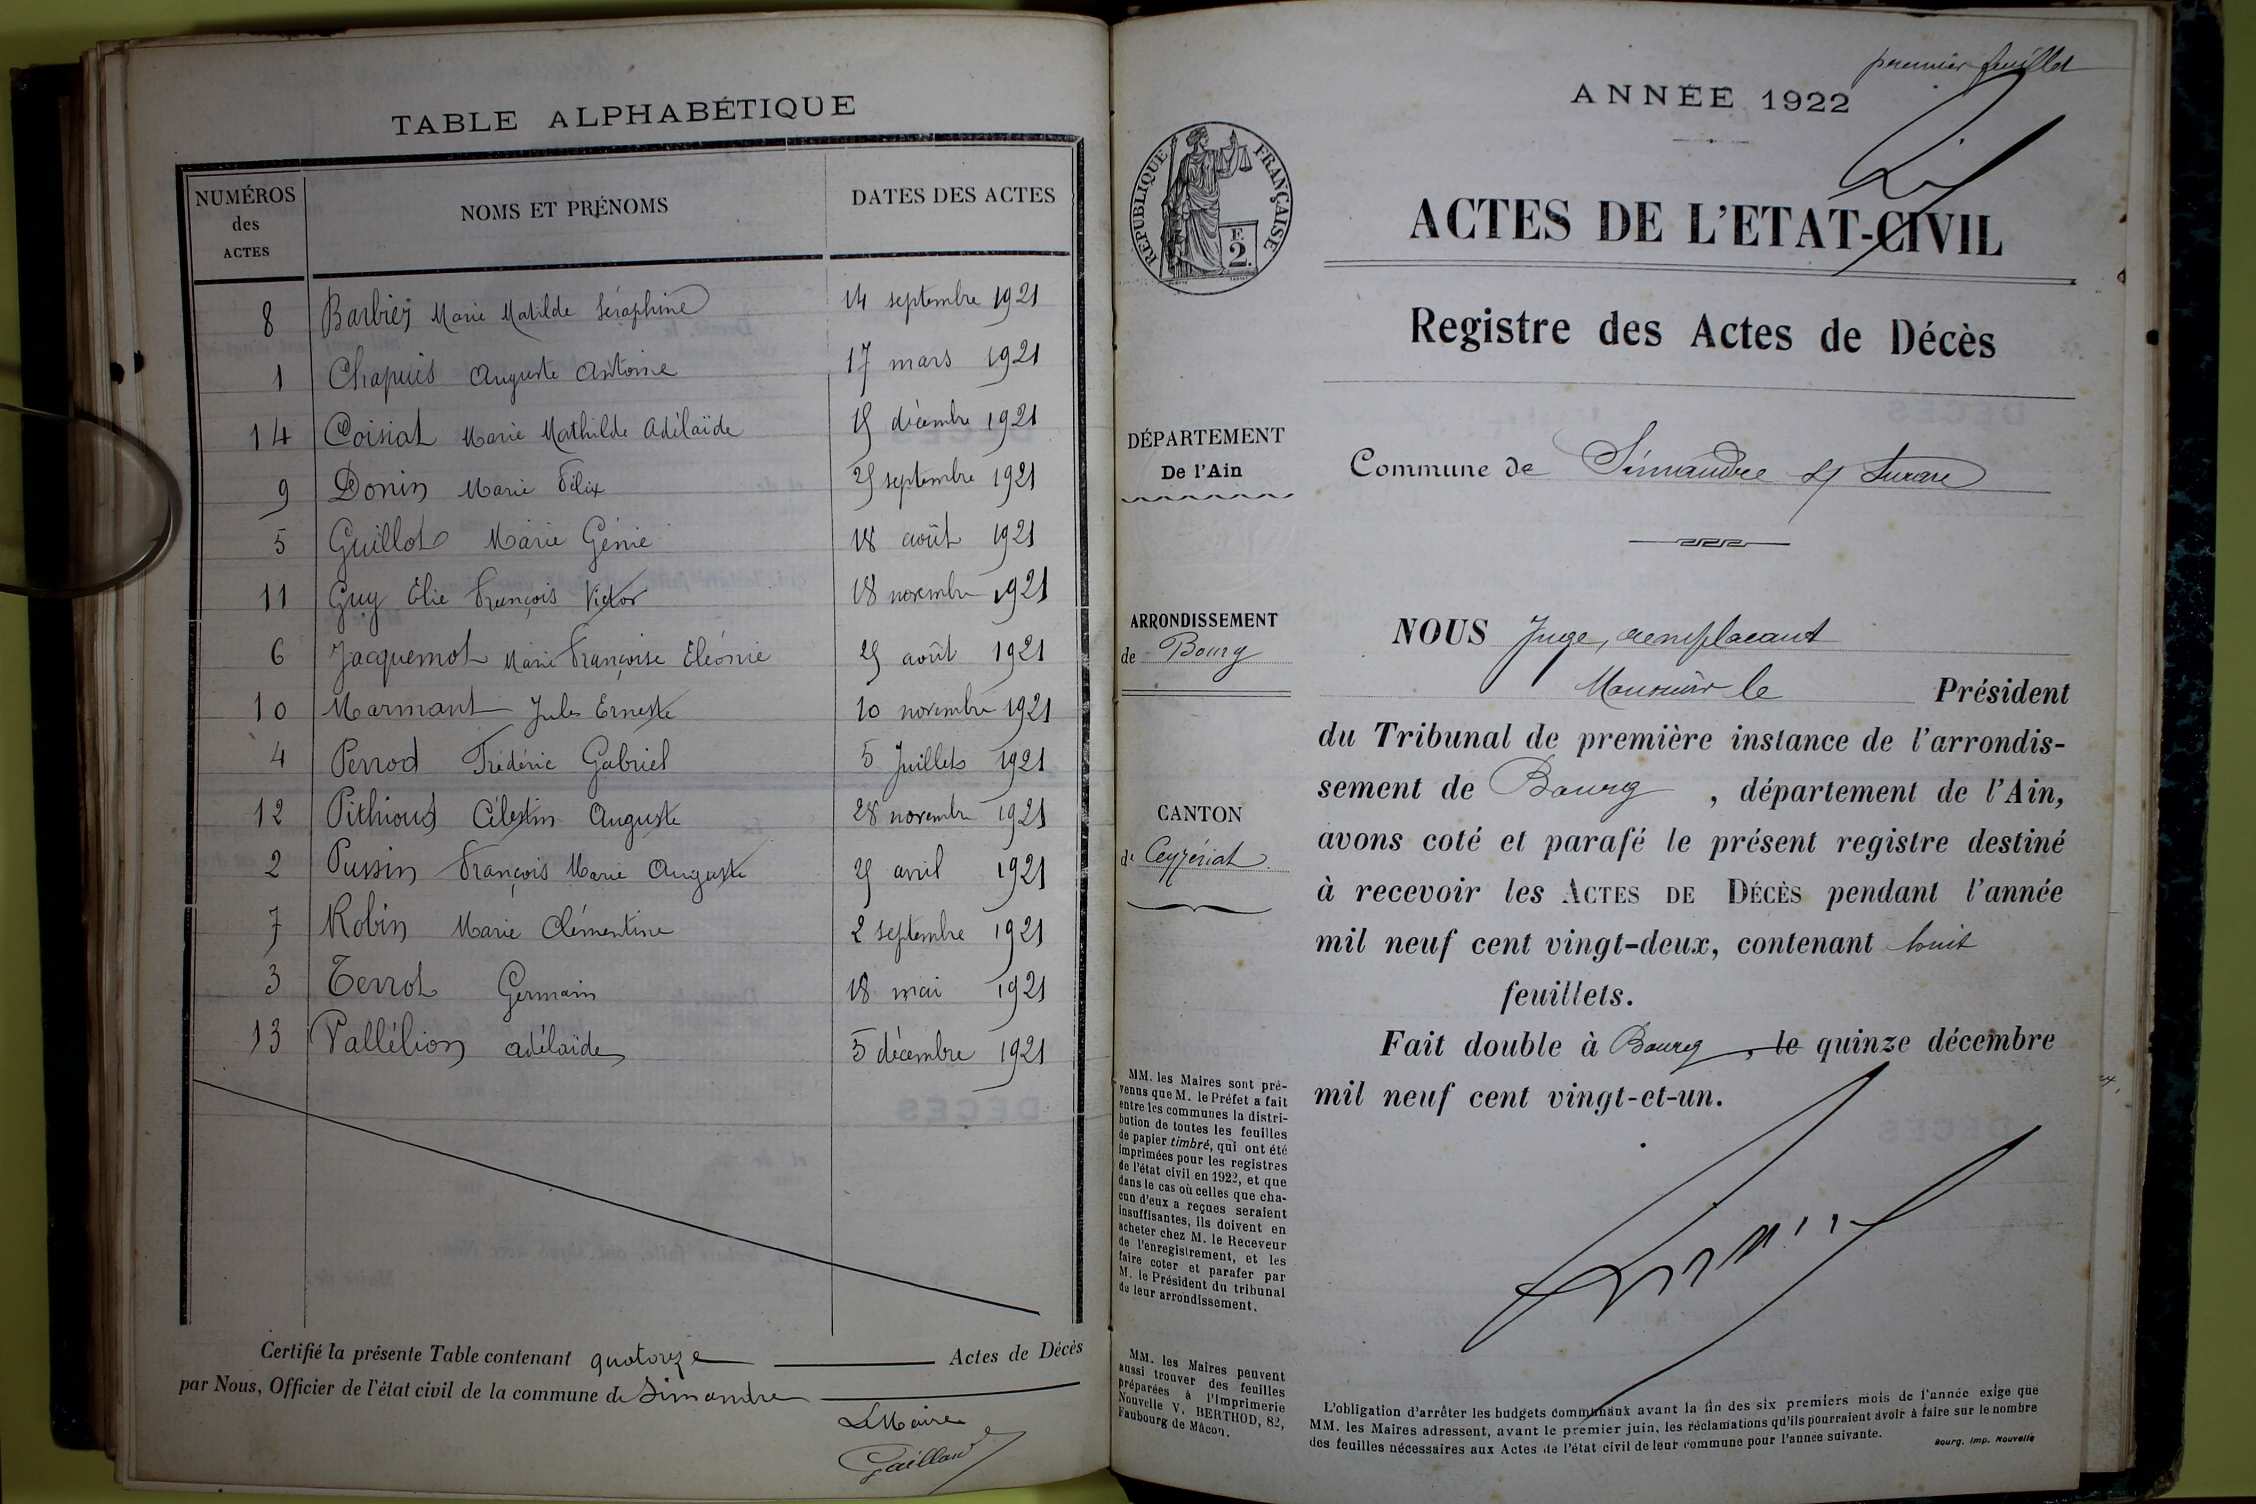 TABLE ALPHABÉTIQUE
NUMÉROS des ACTES NOMS ET PRÉNOMS DATES DES ACTES
8 Barbier Marie Matilde Séraphine 14 septembre 1921
1 Chapuis Auguste Antoine 17 mars 1921
14 Coisiat Marie Mathilde Adélaïde décembre 1921
9 Donin Marie Félix septembre 1921
5 Guillot Marie Génie 18 août 1921
11 Guy Elie François Victor 18 novembre 1921
6 Jacquemot Marie Françoise Eléonie août 1921
10 Marmant Jules Erneste 10 novembre 1921
4 Perrod Frédéric Gabriel 5 Juillet 1921
12 Pithioud Célestin Auguste 28 novembre 1921
2 Pussin François Marie Auguste avril 1921
7 Robin Marie Clémentine 2 septembre 1921
3 Terrot Germain 18 mai 1921
13 Vallélion adélaïde 5 décembre 1921
Certifié la présente Table contenant quatorze Actes de Décès
par Nous, Officier de l'état civil de la commune de Simandre
Le Maire
premier feuillet
ANNÉE 1922
RÉPUBLIQUE FRANÇAISE
F. 2.
ACTES DE L'ETAT-CIVIL
Registre des Actes de Décès
DÉPARTEMENT
De l'Ain
Commune de Simandre s/ Suran
ARRONDISSEMENT
de Bourg
CANTON
de Ceyzériat
NOUS Juge, remplaçant
Monsieur le Président
du Tribunal de première instance de l'arrondis-
sement de Bourg, département de l'Ain,
avons coté et parafé le présent registre destiné
à recevoir les ACTES DE DÉCÈS pendant l'année
mil neuf cent vingt-deux, contenant huit
feuillets.
Fait double à Bourg, le quinze décembre
mil neuf cent vingt-et-un.
MM. les Maires sont pré-
venus que M. le Préfet a fait
entre les communes la distri-
bution de toutes les feuilles
de papier timbré, qui ont été
imprimées pour les registres
de l'état civil en 1922, et que
dans le cas où celles que cha-
cun d'eux a reçues seraient
insuffisantes, ils doivent en
acheter chez M. le Receveur
de l'enregistrement, et les
faire coter et parafer par
M. le Président du tribunal
de leur arrondissement.
MM. les Maires peuvent
aussi trouver des feuilles
préparées à l'Imprimerie
Nouvelle V. BERTHOD, 82,
Faubourg de Mâcon.
L'obligation d'arrêter les budgets communaux avant la fin des six premiers mois de l'année exige que
MM. les Maires adressent, avant le premier juin, les réclamations qu'ils pourraient avoir à faire sur le nombre
des feuilles nécessaires aux Actes de l'état civil de leur commune pour l'année suivante.
Bourg, Imp. Nouvelle